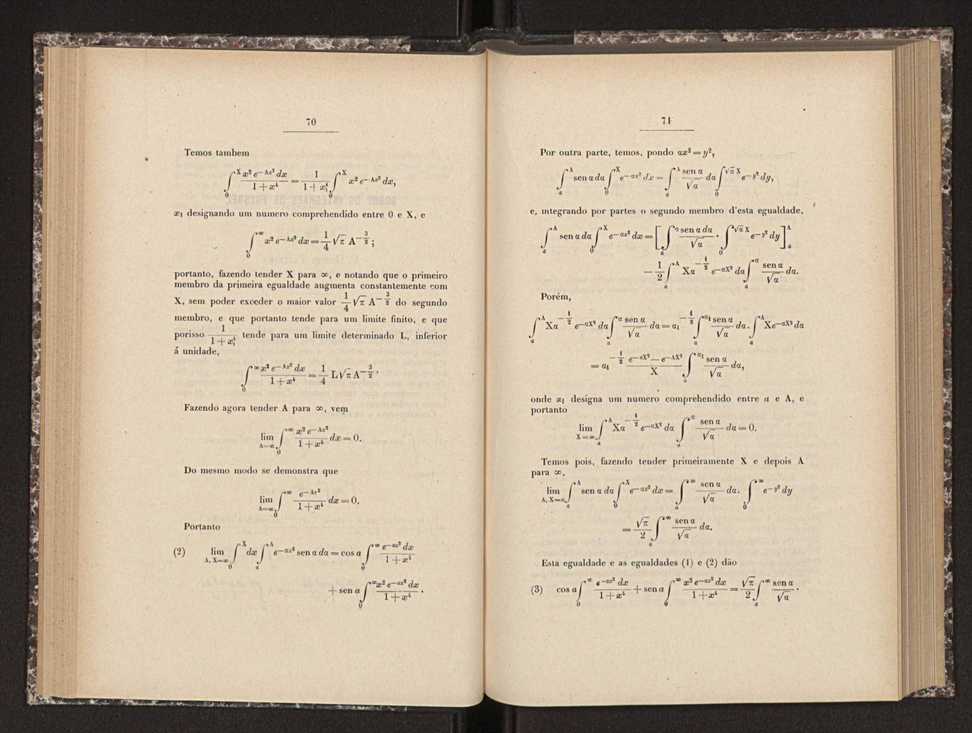 70
Temos tambem
∫₀^X x² e^{−Ax²} dx / (1 + x⁴) = 1 / (1 + x₁⁴) ∫₀^X x² e^{−Ax²} dx,
x₁ designando um numero comprehendido entre 0 e X, e
∫₀^∞ x² e^{−Ax²} dx = 1/4 √π A^{−3/2};
portanto, fazendo tender X para ∞, e notando que o primeiro
membro da primeira egualdade augmenta constantemente com
X, sem poder exceder o maior valor 1/4 √π A^{−3/2} do segundo
membro, e que portanto tende para um limite finito, e que
porisso 1 / (1 + x₁⁴) tende para um limite determinado L, inferior
á unidade,
∫₀^∞ x² e^{−Ax²} dx / (1 + x⁴) = 1/4 L √π A^{−3/2}.
Fazendo agora tender A para ∞, vem
lim_{A=∞} ∫₀^∞ x² e^{−Ax²} / (1 + x⁴) dx = 0.
Do mesmo modo se demonstra que
lim_{A=∞} ∫₀^∞ e^{−Ax²} / (1 + x⁴) dx = 0.
Portanto
(2) lim_{A, X=∞} ∫₀^X dx ∫_a^A e^{−ax²} sen a da = cos a ∫₀^∞ e^{−ax²} dx / (1 + x⁴)
+ sen a ∫₀^∞ x² e^{−ax²} dx / (1 + x⁴).
71
Por outra parte, temos, pondo ax² = y²,
∫_a^A sen a da ∫₀^X e^{−ax²} dx = ∫_a^A sen a / √a da ∫₀^{√a X} e^{−y²} dy,
e, integrando por partes o segundo membro d'esta egualdade,
∫_a^A sen a da ∫₀^X e^{−ax²} dx = [∫_a^a sen a da / √a · ∫₀^{√a X} e^{−y²} dy]_a^A
− 1/2 ∫_a^A X a^{−1/2} e^{−aX²} da ∫_a^a sen a / √a da.
Porém,
∫_a^A X a^{−1/2} e^{−aX²} da ∫_a^a sen a / √a da = a₁^{−1/2} ∫_a^{a₁} sen a / √a da · ∫_a^A X e^{−aX²} da
= a₁^{−1/2} (e^{−aX²} − e^{−AX²}) / X ∫_a^{a₁} sen a / √a da,
onde a₁ designa um numero comprehendido entre a e A, e
portanto
lim_{X=∞} ∫_a^A X a^{−1/2} e^{−aX²} da ∫_a^a sen a / √a da = 0.
Temos pois, fazendo tender primeiramente X e depois A
para ∞,
lim_{A, X=∞} ∫_a^A sen a da ∫₀^X e^{−ax²} dx = ∫_a^∞ sen a / √a da. ∫₀^∞ e^{−y²} dy
= √π / 2 ∫_a^∞ sen a / √a da.
Esta egualdade e as egualdades (1) e (2) dão
(3) cos a ∫₀^∞ e^{−ax²} dx / (1 + x⁴) + sen a ∫₀^∞ x² e^{−ax²} dx / (1 + x⁴) = √π / 2 ∫_a^∞ sen a / √a.